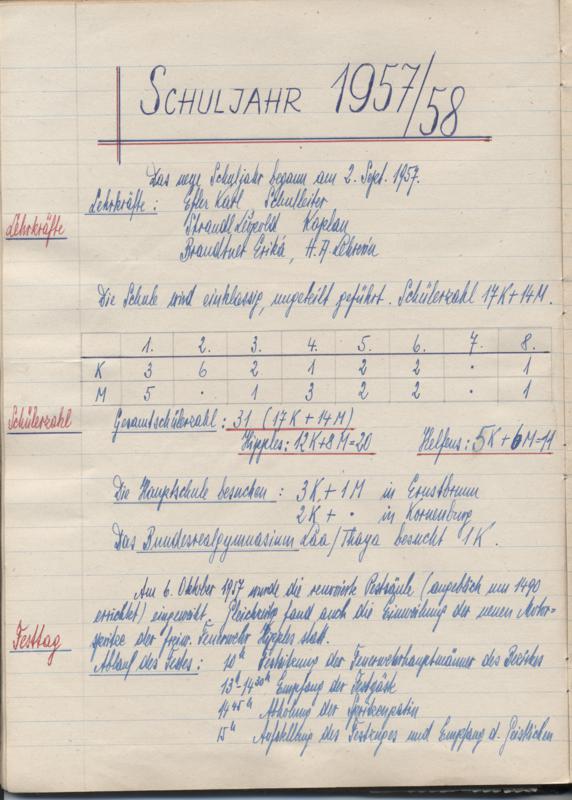 SCHULJAHR 1957/58
Das neue Schuljahr begann am 2. Sept. 1957.
Lehrkräfte
Lehrkräfte: Efler Karl Schulleiter
Strandl Leopold Kaplan
Brandtner Erika, H.A. Lehrerin
Die Schule wird einklassig, ungeteilt geführt. Schülerzahl 17K + 14M.
1. 2. 3. 4. 5. 6. 7. 8.
K 3 6 2 1 2 2 · 1
M 5 · 1 3 2 2 · 1
Schülerzahl
Gesamtschülerzahl: 31 (17K + 14M)
Hipples: 12K+8M=20 Helfens: 5K+6M=11
Die Hauptschule besuchen: 3K + 1M in Ernstbrunn
2K + · in Korneuburg
Das Bundesrealgymnasium Laa/Thaya besucht 1K.
Festtag
Am 6. Oktober 1957 wurde die renovierte Pestsäule (angeblich um 1490
errichtet) eingeweiht. Gleichzeitig fand auch die Einweihung der neuen Motor-
spritze der freiw. Feuerwehr Hipples statt.
Ablauf des Festes: 10h Festsitzung der Feuerwehrhauptmänner des Bezirkes
13h-14 30h Empfang der Festgäste
14 45h Abholung der Spritzenpatin
15h Aufstellung des Festzuges und Empfang d. Geistlichen